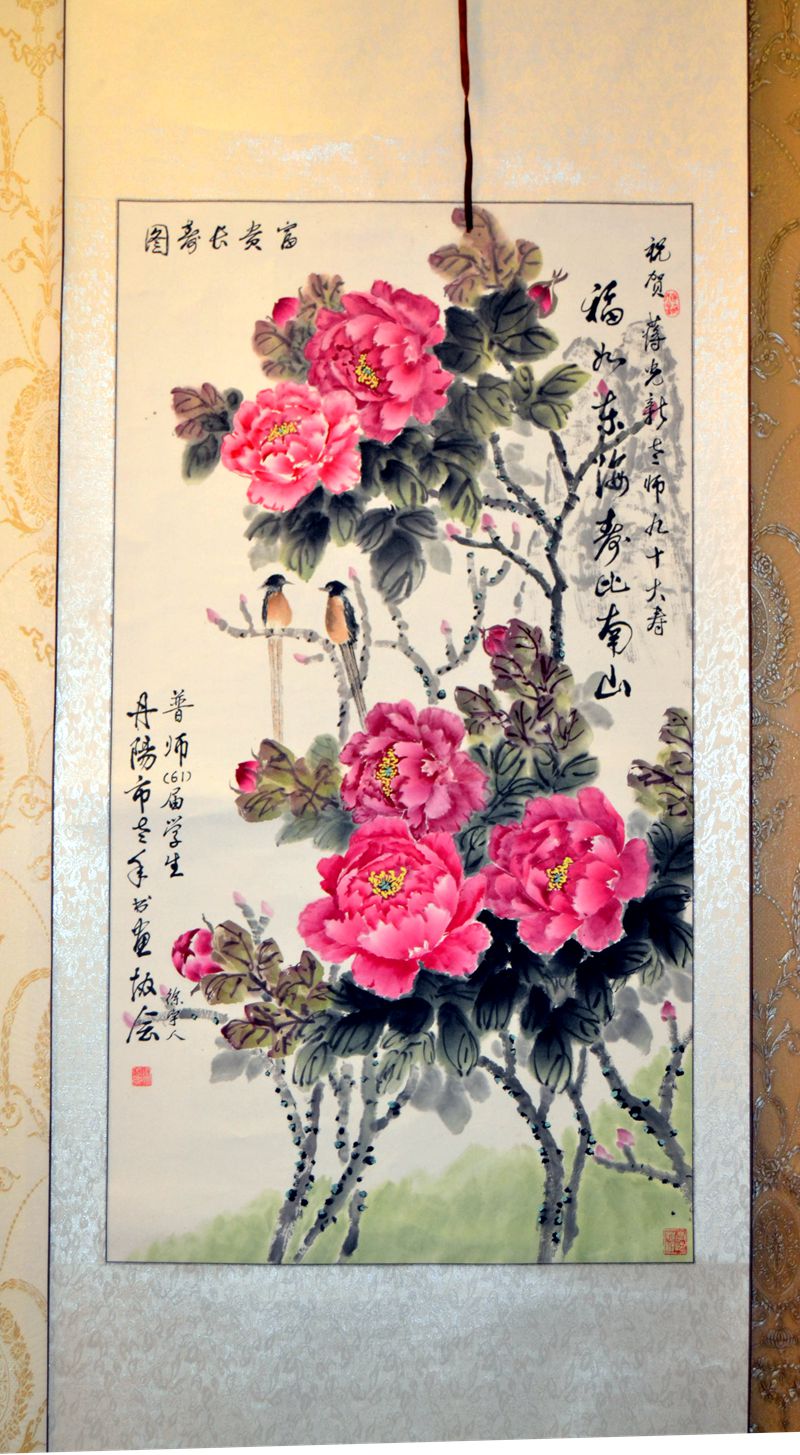 富贵长寿图
祝贺
蒋光新老师九十大寿
福如东海寿比南山
普师(61)届学生
丹陽市老年书画敬绘
徐宇人